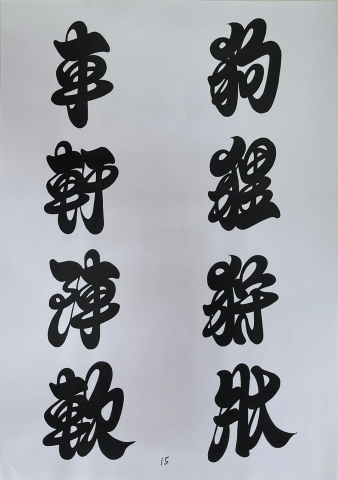 狗狸狀
車軒陣軟
15